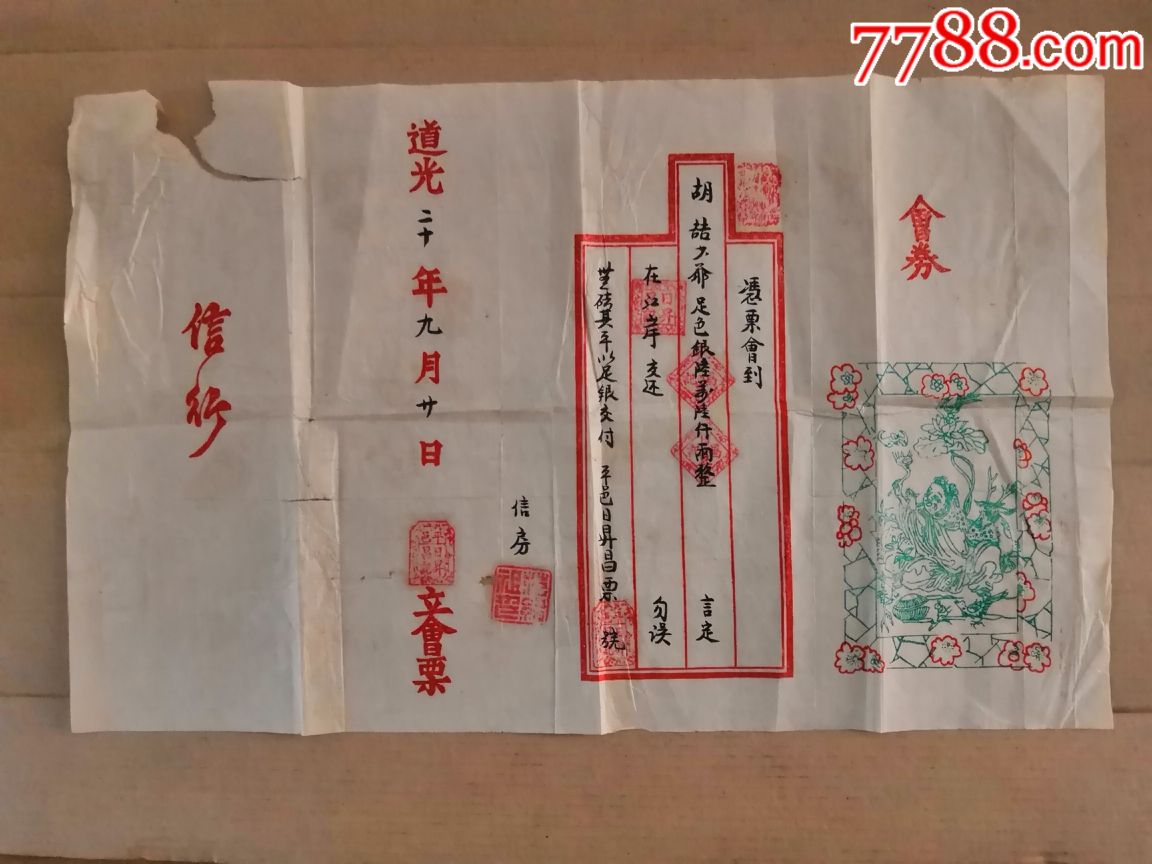 7788.com
會券
憑票會到
胡喆少爺足色銀陸萬陸仟兩整 言定
在江岸交还 勿误
其平以足銀交付 平邑日昇昌票號
信房
道光二十年九月廿日 立會票
信行